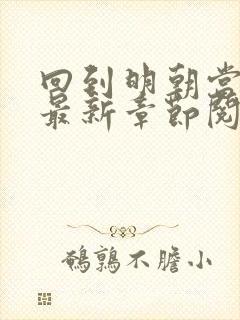 回到明朝当
最新章节阅
鹌鹑不膽小